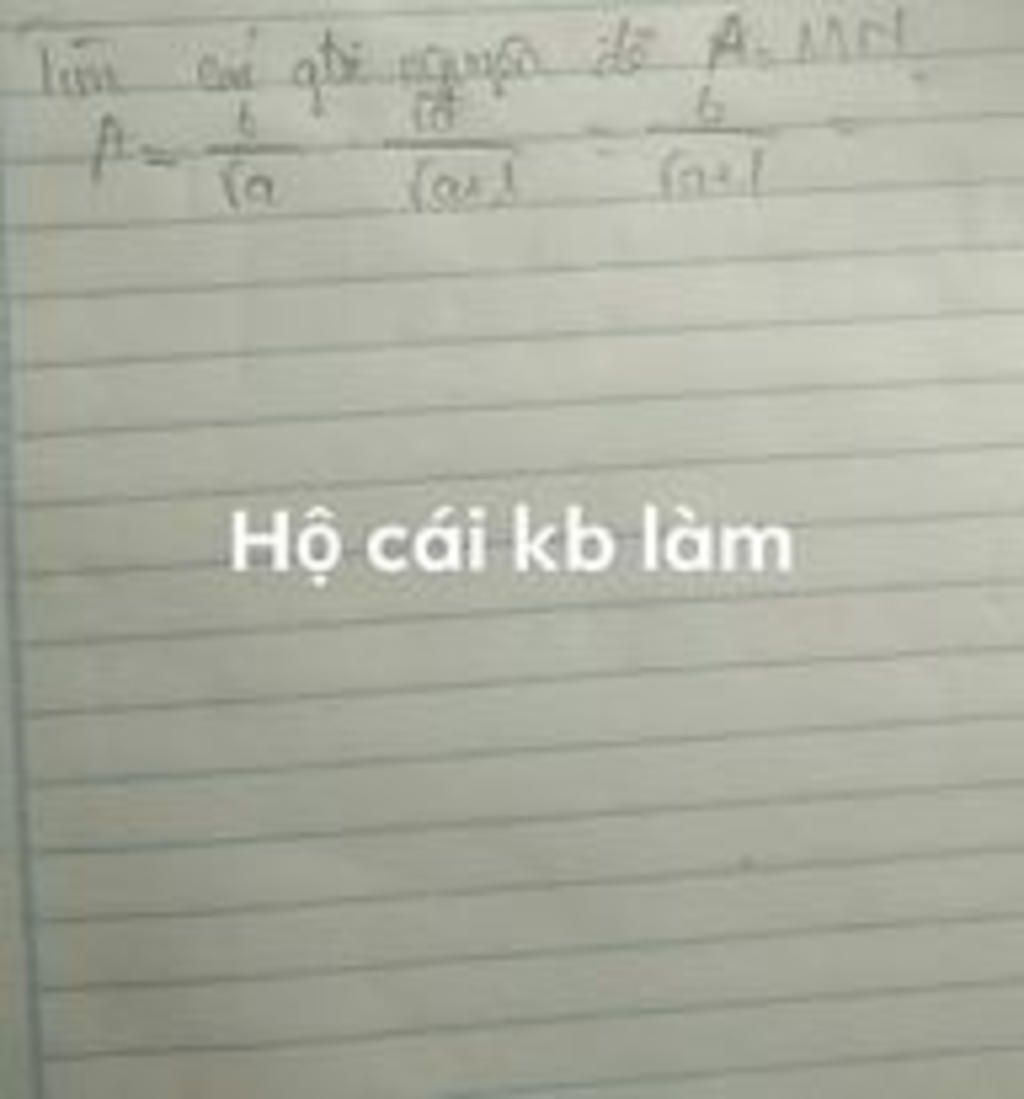 Tìm các gtri nguyên để A = M.N
A = 6/√a · √a/√a+1 = 6/√a+1
Hộ cái kb làm